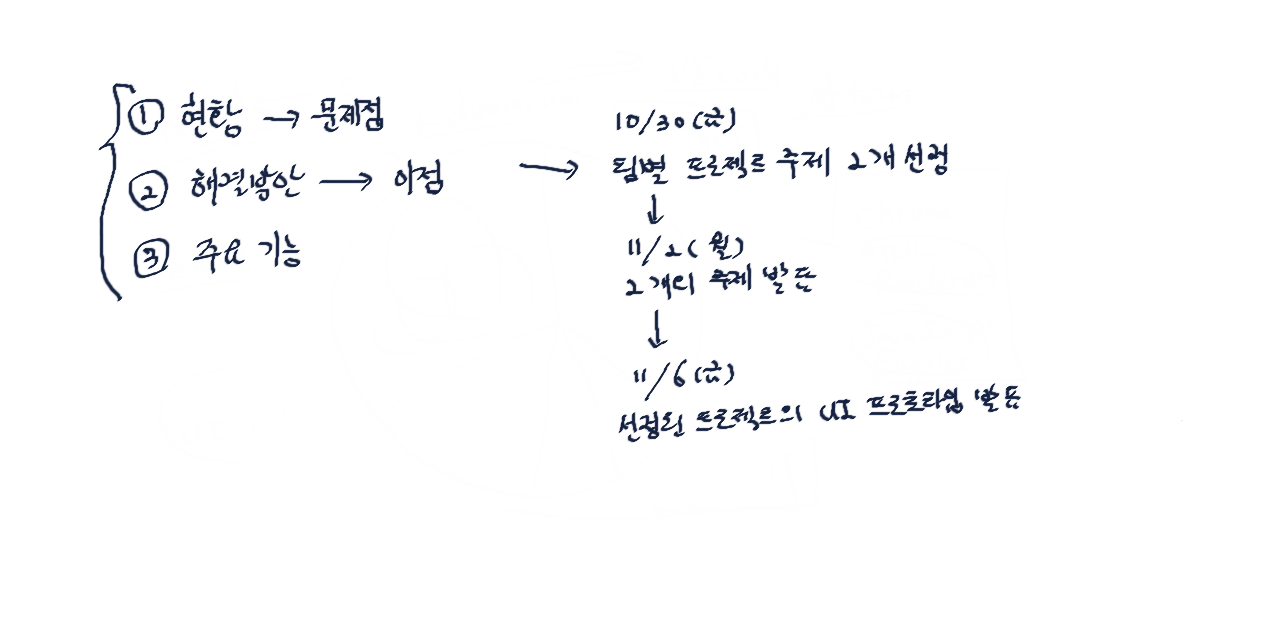 ① 현황 → 문제점
② 해결방안 → 이점
③ 주요 기능
→
10/30(금)
팀별 프로젝트 주제 2개 선정
↓
11/2(월)
2개의 주제 발표
↓
11/6(금)
선정된 프로젝트의 UI 프로토타입 발표